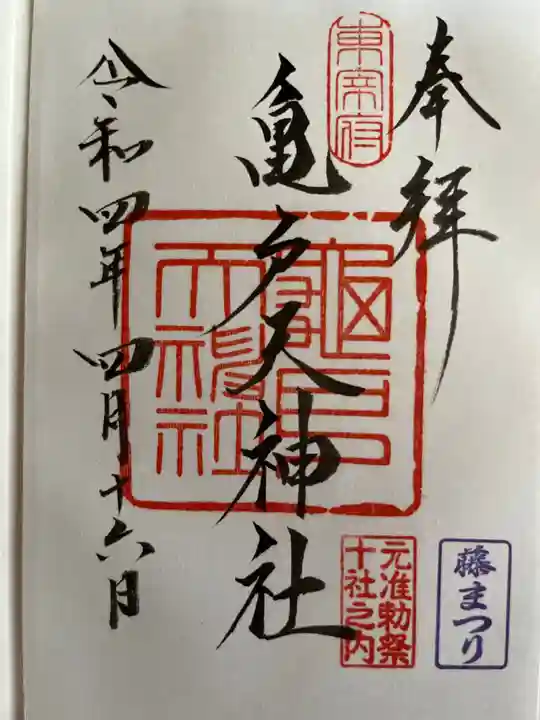 奉拝
東宰府
亀戸天神社
龜戸天神社
元准勅祭
十社之内
藤まつり
令和四年四月十六日